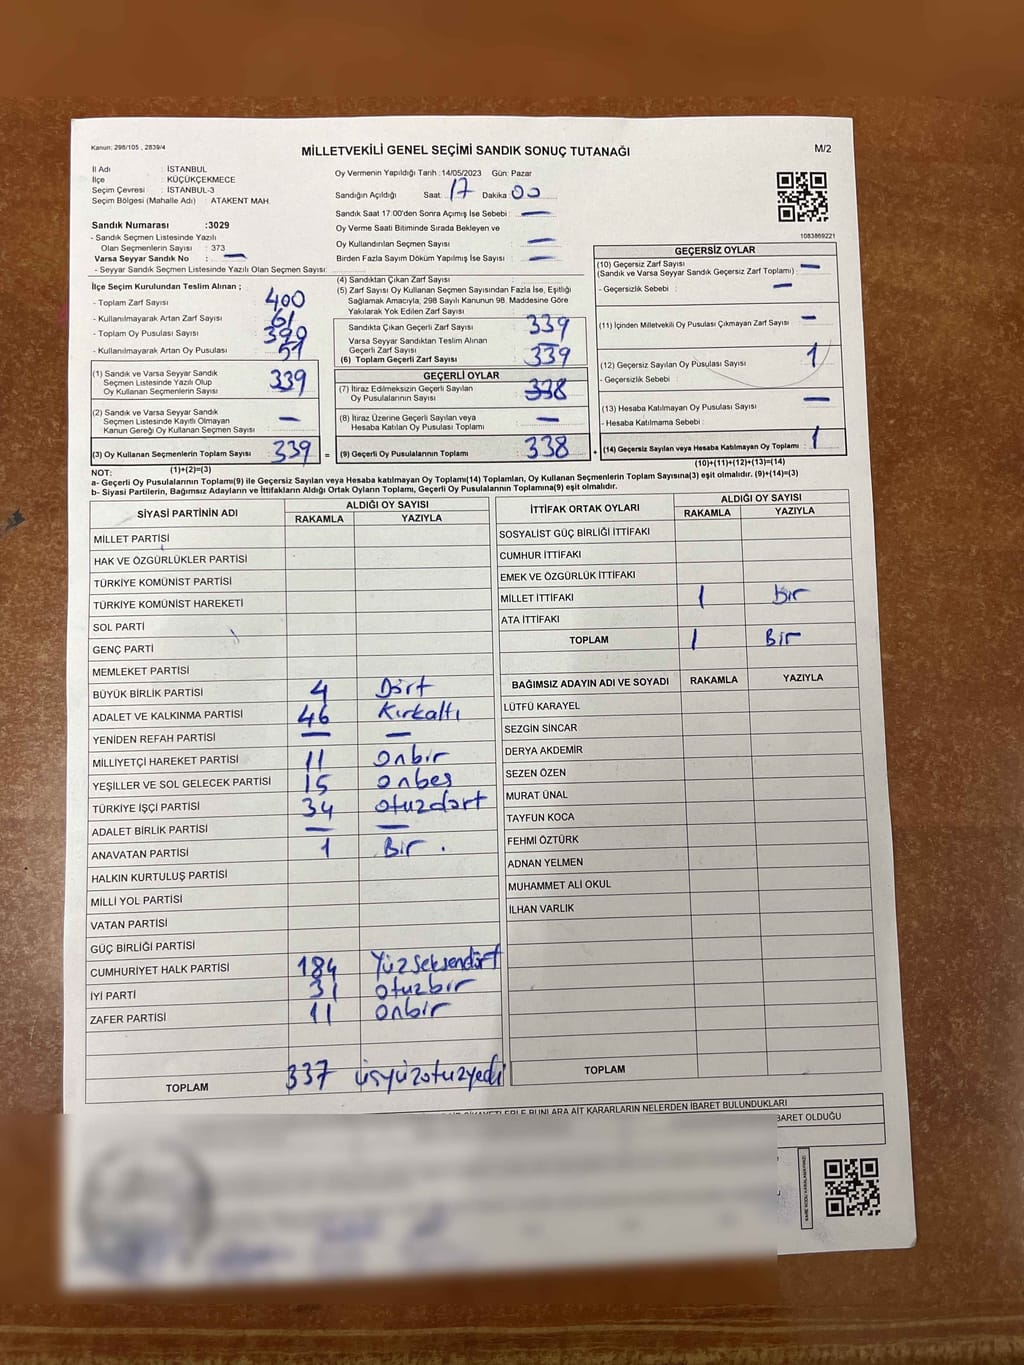 Kanun: 298/105 , 2839/4
MİLLETVEKİLİ GENEL SEÇİMİ SANDIK SONUÇ TUTANAĞI
M/2
İl Adı : İSTANBUL
İlçe : KÜÇÜKÇEKMECE
Seçim Çevresi : İSTANBUL-3
Seçim Bölgesi (Mahalle Adı) : ATAKENT MAH.
Sandık Numarası :3029
- Sandık Seçmen Listesinde Yazılı
Olan Seçmenlerin Sayısı : 373
Varsa Seyyar Sandık No : —
- Seyyar Sandık Seçmen Listesinde Yazılı Olan Seçmen Sayısı:
Oy Vermenin Yapıldığı Tarih :14/05/2023 Gün: Pazar
Sandığın Açıldığı Saat: 17 Dakika 00
Sandık Saat 17:00'den Sonra Açımış İse Sebebi : —
Oy Verme Saati Bitiminde Sırada Bekleyen ve
Oy Kullandırılan Seçmen Sayısı : —
Birden Fazla Sayım Döküm Yapılmış İse Sayısı : —
1083869221
İlçe Seçim Kurulundan Teslim Alınan ;
- Toplam Zarf Sayısı : 400
- Kullanılmayarak Artan Zarf Sayısı : 61
- Toplam Oy Pusulası Sayısı : 390
- Kullanılmayarak Artan Oy Pusulası : 51
(1) Sandık ve Varsa Seyyar Sandık
Seçmen Listesinde Yazılı Olup
Oy Kullanan Seçmenlerin Sayısı : 339
(2) Sandık ve Varsa Seyyar Sandık
Seçmen Listesinde Kayıtlı Olmayan
Kanun Gereği Oy Kullanan Seçmen Sayısı : —
(3) Oy Kullanan Seçmenlerin Toplam Sayısı : 339 =
(4) Sandıktan Çıkan Zarf Sayısı :
(5) Zarf Sayısı Oy Kullanan Seçmen Sayısından Fazla İse, Eşitliği
Sağlamak Amacıyla, 298 Sayılı Kanunun 98. Maddesine Göre
Yakılarak Yok Edilen Zarf Sayısı :
Sandıkta Çıkan Geçerli Zarf Sayısı : 339
Varsa Seyyar Sandıktan Teslim Alınan
Geçerli Zarf Sayısı : —
(6) Toplam Geçerli Zarf Sayısı : 339
GEÇERLİ OYLAR
(7) İtiraz Edilmeksizin Geçerli Sayılan
Oy Pusulalarının Sayısı : 338
(8) İtiraz Üzerine Geçerli Sayılan veya
Hesaba Katılan Oy Pusulası Toplamı : —
(9) Geçerli Oy Pusulalarının Toplamı : 338 +
GEÇERSİZ OYLAR
(10) Geçersiz Zarf Sayısı
(Sandık ve Varsa Seyyar Sandık Geçersiz Zarf Toplamı) : —
- Geçersizlik Sebebi : —
(11) İçinden Milletvekili Oy Pusulası Çıkmayan Zarf Sayısı : —
(12) Geçersiz Sayılan Oy Pusulası Sayısı : 1
- Geçersizlik Sebebi :
(13) Hesaba Katılmayan Oy Pusulası Sayısı : —
- Hesaba Katılmama Sebebi :
(14) Geçersiz Sayılan veya Hesaba Katılmayan Oy Toplamı : 1
NOT: (1)+(2)=(3)
(10)+(11)+(12)+(13)=(14)
a- Geçerli Oy Pusulalarının Toplamı(9) ile Geçersiz Sayılan veya Hesaba Katılmayan Oy Toplamı(14) Toplamları, Oy Kullanan Seçmenlerin Toplam Sayısına(3) eşit olmalıdır. (9)+(14)=(3)
b- Siyasi Partilerin, Bağımsız Adayların ve İttifakların Aldığı Ortak Oyların Toplamı, Geçerli Oy Pusulalarının Toplamına(9) eşit olmalıdır.
SİYASİ PARTİNİN ADI
ALDIĞI OY SAYISI
RAKAMLA YAZIYLA
MİLLET PARTİSİ
HAK VE ÖZGÜRLÜKLER PARTİSİ
TÜRKİYE KOMÜNİST PARTİSİ
TÜRKİYE KOMÜNİST HAREKETİ
SOL PARTİ
GENÇ PARTİ
MEMLEKET PARTİSİ
BÜYÜK BİRLİK PARTİSİ 4 Dört
ADALET VE KALKINMA PARTİSİ 46 Kırkaltı
YENİDEN REFAH PARTİSİ — —
MİLLİYETÇİ HAREKET PARTİSİ 11 onbir
YEŞİLLER VE SOL GELECEK PARTİSİ 15 onbeş
TÜRKİYE İŞÇİ PARTİSİ 34 otuzdört
ADALET BİRLİK PARTİSİ — —
ANAVATAN PARTİSİ 1 Bir .
HALKIN KURTULUŞ PARTİSİ
MİLLİ YOL PARTİSİ
VATAN PARTİSİ
GÜÇ BİRLİĞİ PARTİSİ
CUMHURİYET HALK PARTİSİ 184 Yüzseksendört
İYİ PARTİ 31 otuzbir
ZAFER PARTİSİ 11 onbir
TOPLAM 337 üçyüzotuzyedi
İTTİFAK ORTAK OYLARI
ALDIĞI OY SAYISI
RAKAMLA YAZIYLA
SOSYALİST GÜÇ BİRLİĞİ İTTİFAKI
CUMHUR İTTİFAKI
EMEK VE ÖZGÜRLÜK İTTİFAKI
MİLLET İTTİFAKI 1 Bir
ATA İTTİFAKI
TOPLAM 1 Bir
BAĞIMSIZ ADAYIN ADI VE SOYADI RAKAMLA YAZIYLA
LÜTFÜ KARAYEL
SEZGİN SİNCAR
DERYA AKDEMİR
SEZEN ÖZEN
MURAT ÜNAL
TAYFUN KOCA
FEHMİ ÖZTÜRK
ADNAN YELMEN
MUHAMMET ALİ OKUL
İLHAN VARLIK
TOPLAM
BUNLARA AİT KARARLARIN NELERDEN İBARET BULUNDUKLARI
İBARET OLDUĞU